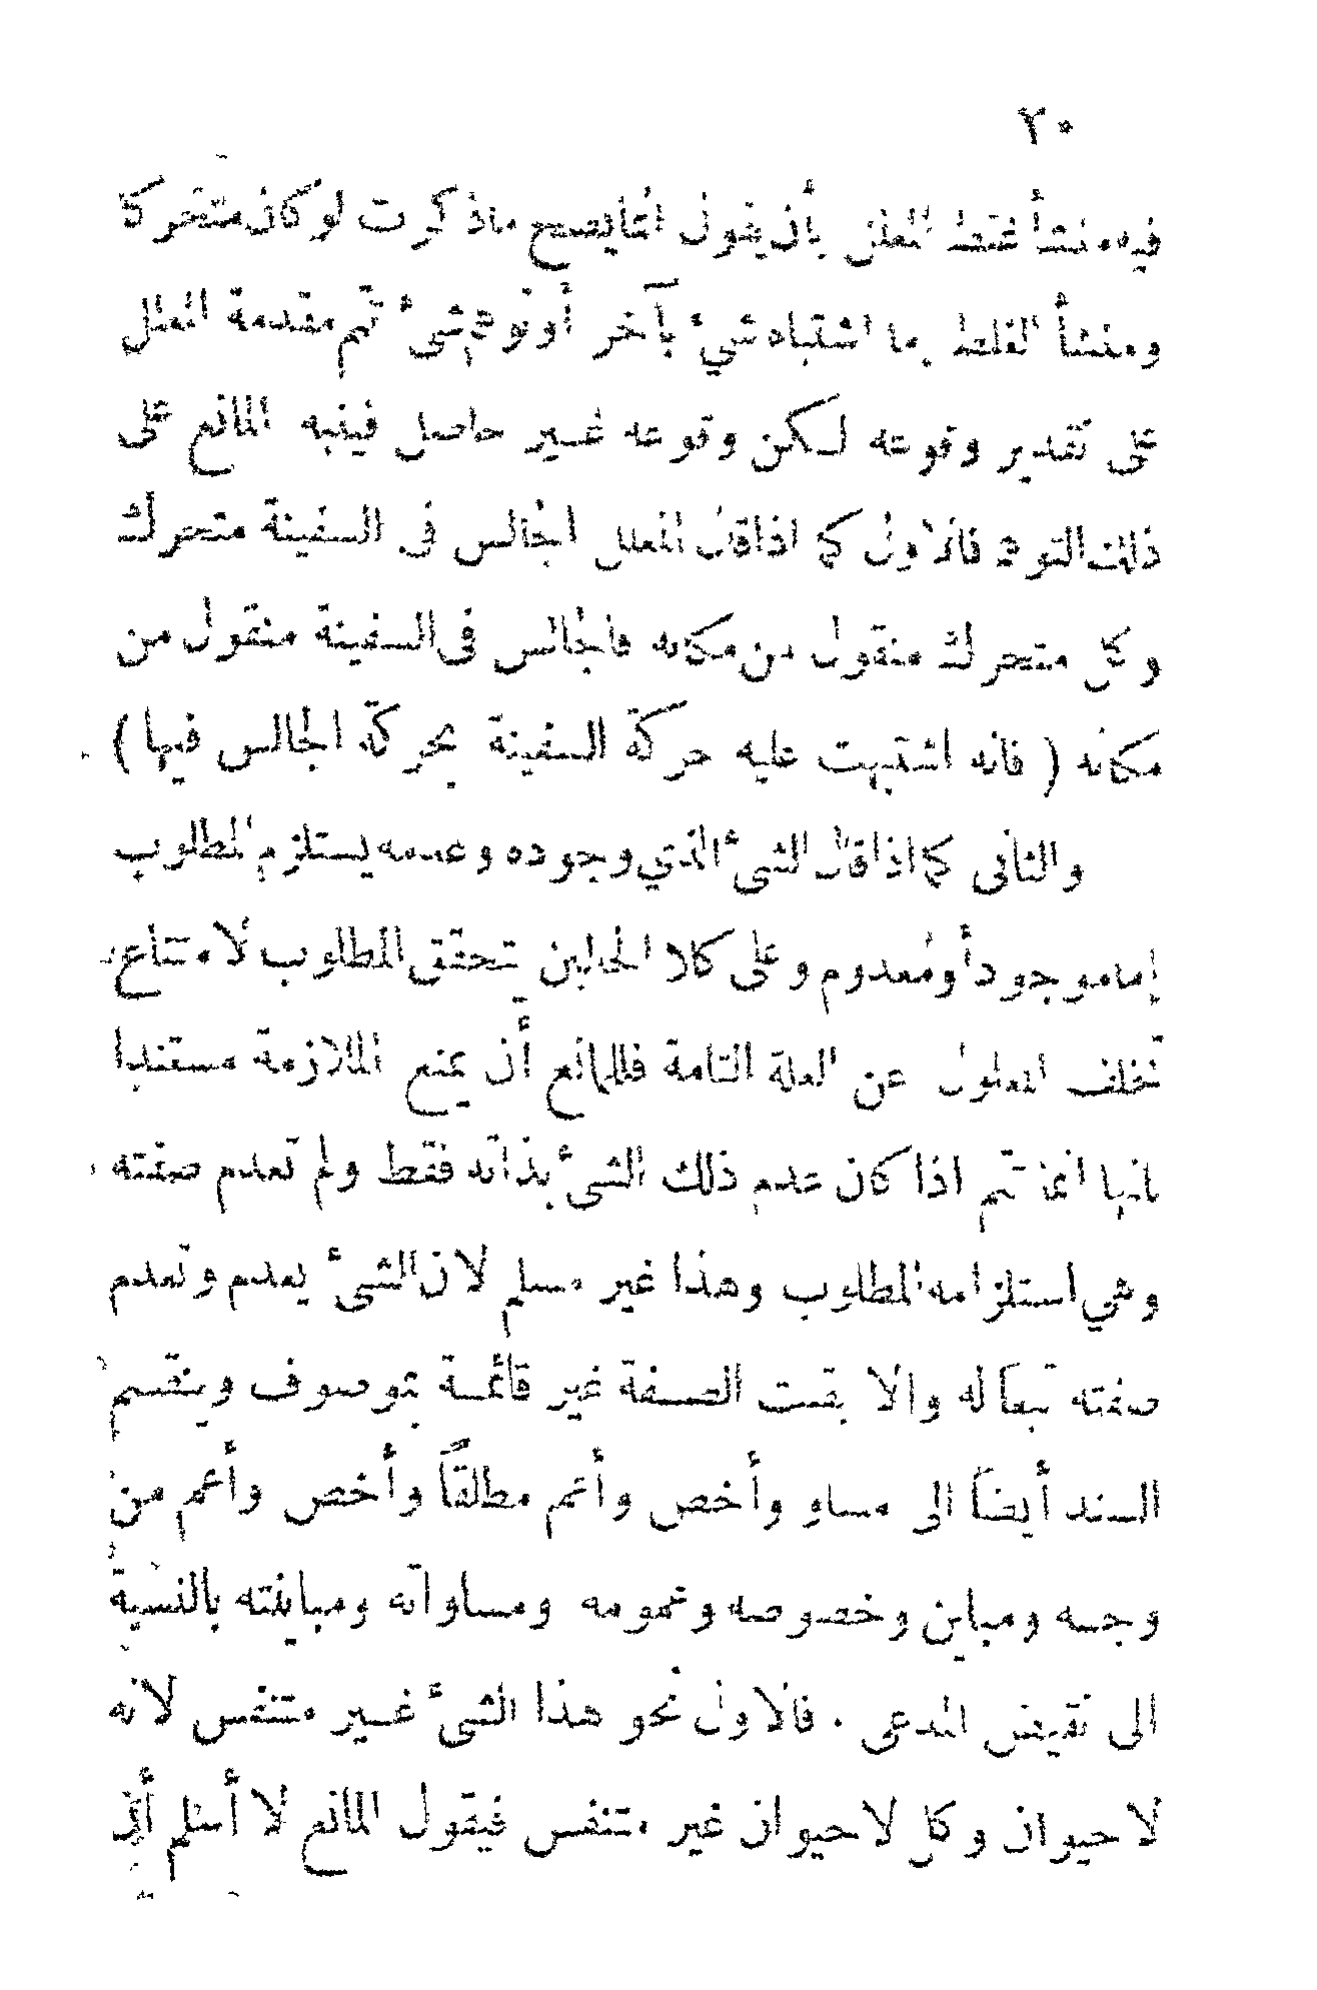 ٢٠
فيه منشأ غلط المعلل بأن يقول انما يصح ماذكرت لوكان متحركا
ومنشأ الغلط إما اشتباه شيء بآخر أو توهم شئ تتم مقدمة المعلل
على تقدير وقوعه لكن وقوعه غير حاصل فينبه المانع على
ذلك التوهم فالاول كما اذاقال المعلل الجالس فى السفينة متحرك
وكل متحرك منقول من مكانه فالجالس فى السفينة منقول من
مكانه ( فانه اشتبهت عليه حركة السفينة بحركة الجالس فيها )
والثانى كما اذا قال الشئ الذي وجوده وعدمه يستلزم المطلوب
إما موجود أو معدوم وعلى كلا الحالين يتحقق المطلوب لامتناع
تخلف المعلول عن العلة التامة فللمانع أن يمنع الملازمة مستندا
بانها انما تتم اذا كان عدم ذلك الشئ بذاته فقط ولم تعدم صفته
وهي استلزامه المطلوب وهذا غير مسلم لان الشئ يعدم وتعدم
صفته تبعاً له والا بقيت الصفة غير قائمة بموصوف وينقسم
السند أيضاً الى مساو وأخص وأعم مطلقاً وأخص وأعم من
وجه ومباين وخصوصه وعمومه ومساواته ومباينته بالنسبة
الى نقيض المدعى . فالاول نحو هذا الشئ غير متنفس لانه
لا حيوان وكل لا حيوان غير متنفس فيقول المانع لا أسلم أنه